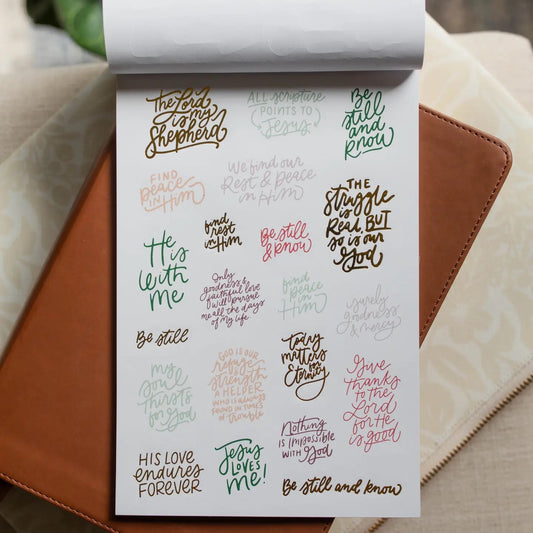 The Lord
is my
Shepherd
All scripture
points to
Jesus
Be
still
and
know
Find
peace
in Him
We find our
Rest & Peace
in Him
The
struggle
is
Real, But
so is our
God
find
rest
in Him
Be still
& know
He
is
with
me
Only
goodness &
faithful love
will pursue
me all the days
of my life
find
peace
in
Him
surely
goodness
& mercy
Be still
Today
matters
for
Eternity
my
soul
thirsts
for God
God is our
refuge
strength
a helper
who is always
found in times
of trouble
Give
thanks
to the
Lord
for He
is good
Nothing
is impossible
with God
His love
endures
forever
Jesus
loves
me!
Be still and know